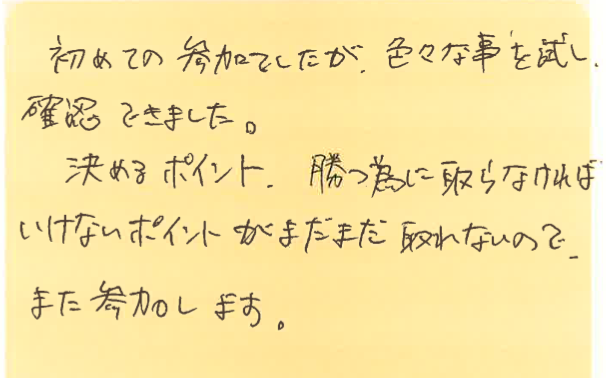 初めての参加でしたが、色々な事を試し、
確認できました。
決めるポイント、勝つ為に取らなければ
いけないポイントがまだまだ取れないので、
また参加します。